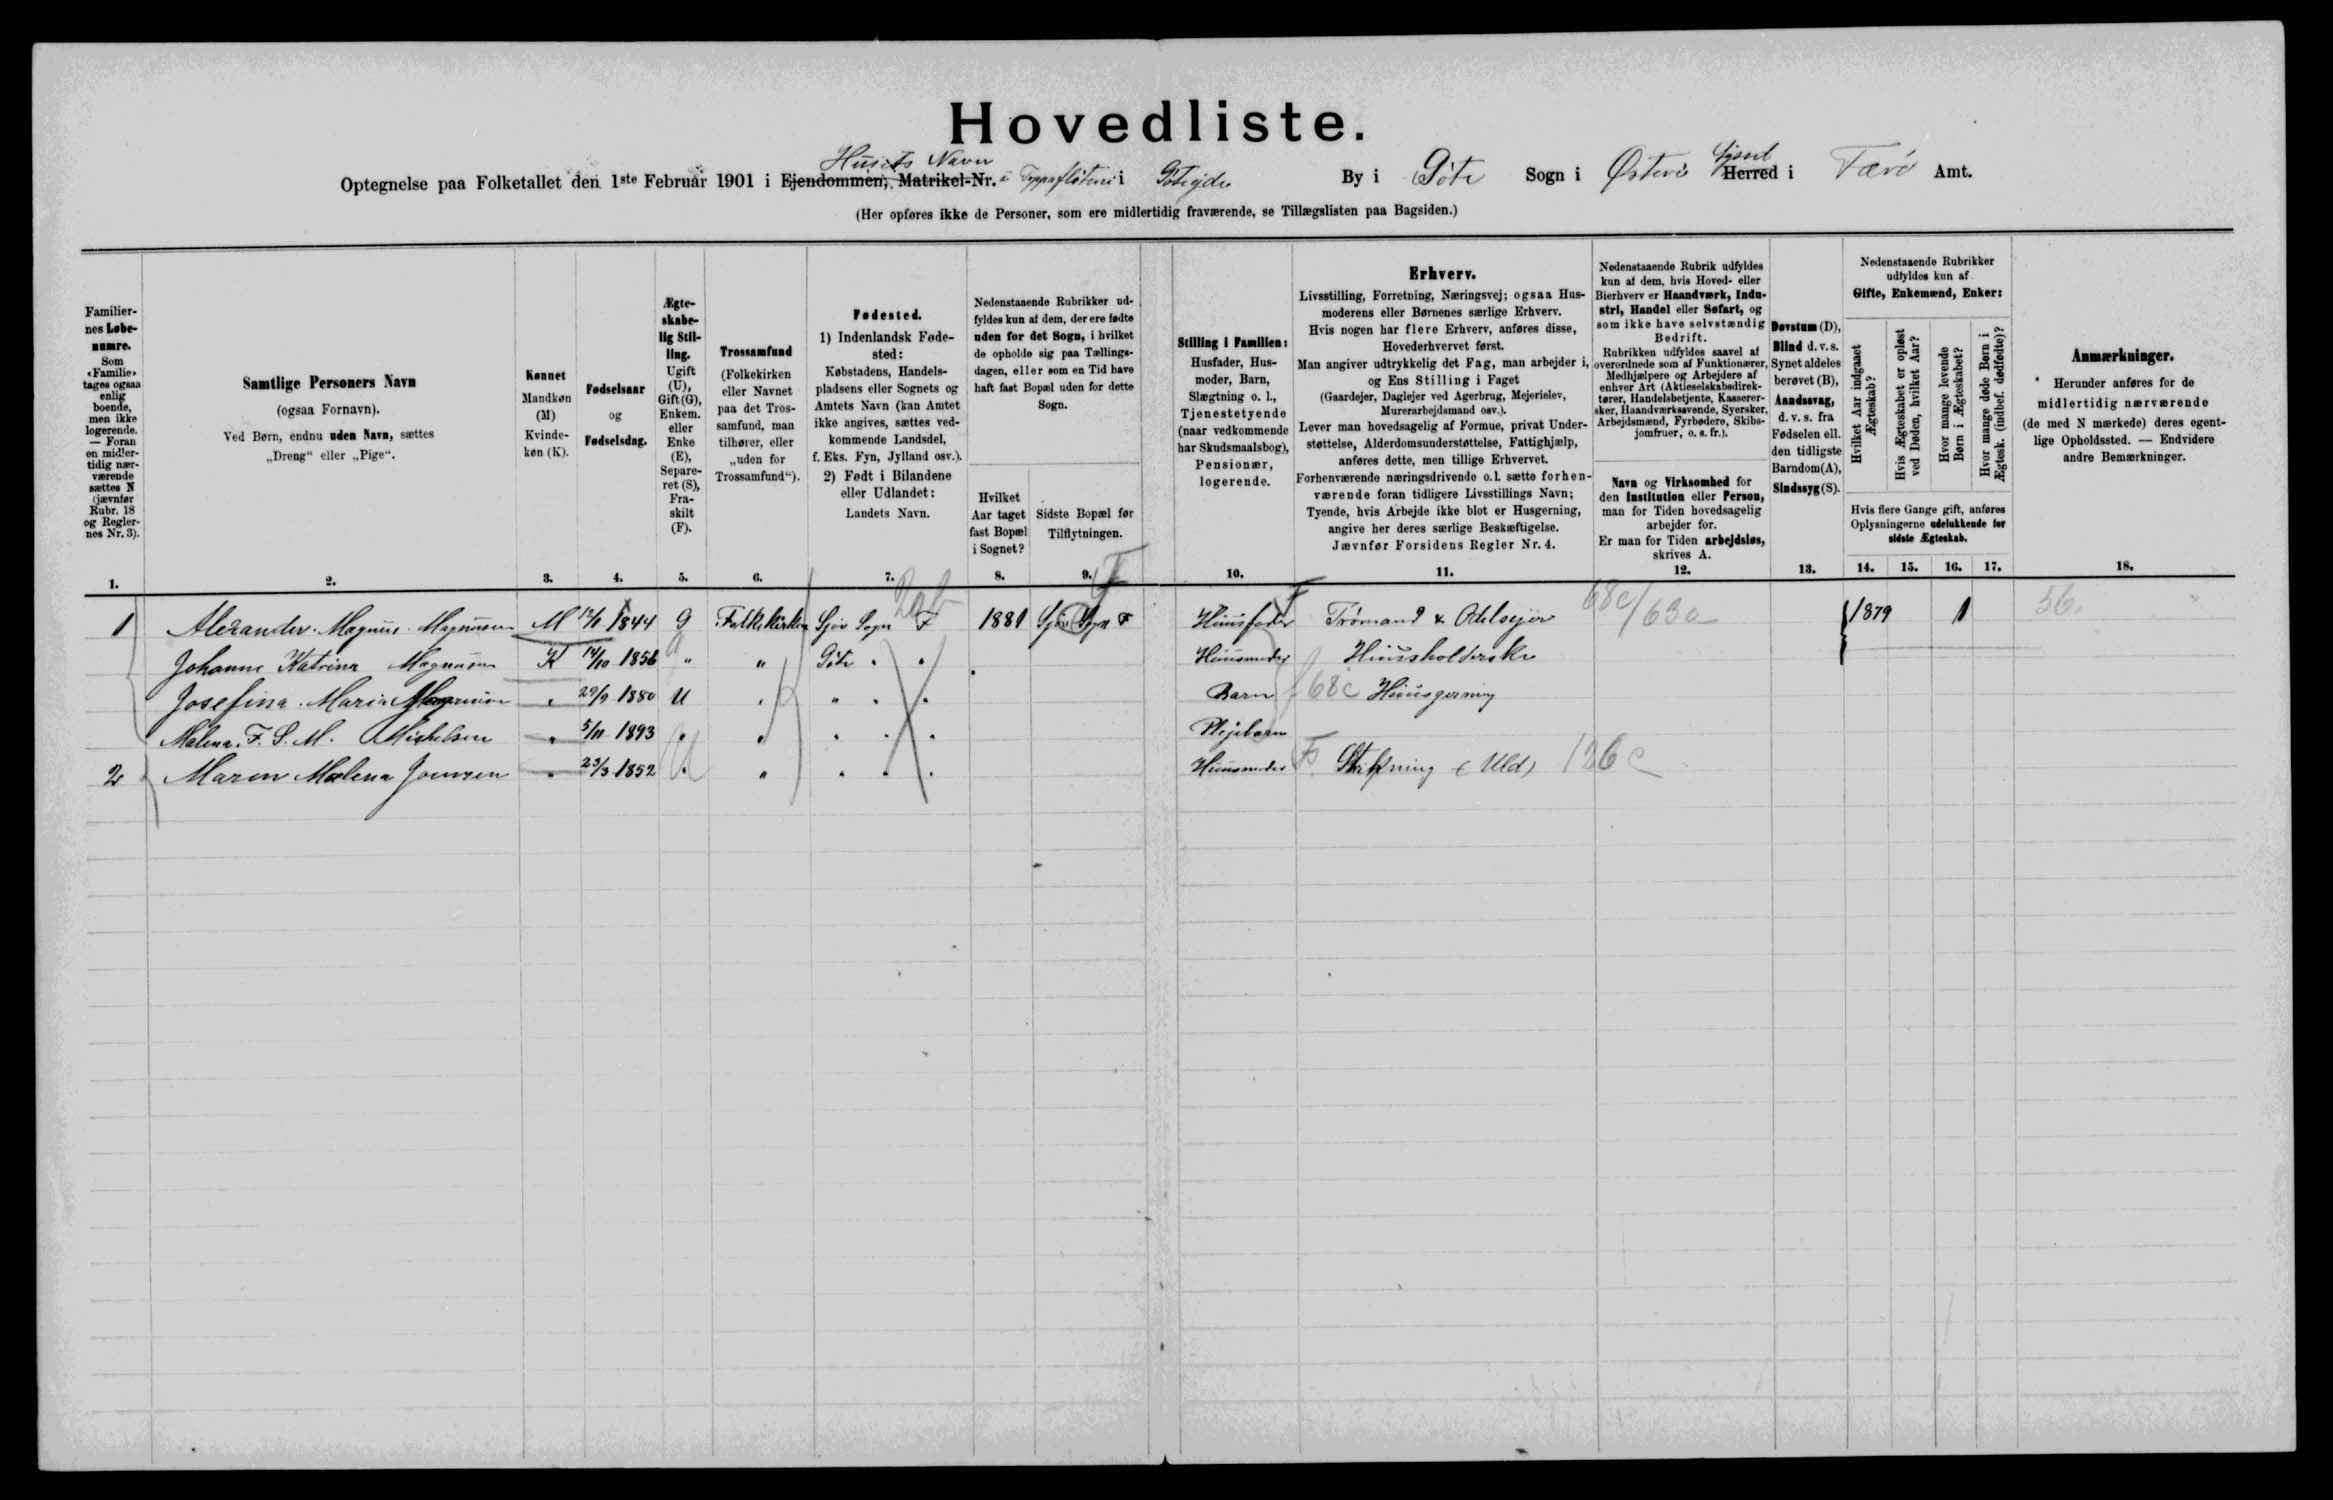 Hovedliste.
Husets Navn
Optegnelse paa Folketallet den 1ste Februar 1901 i Ejendommen, Matrikel-Nr. i Götegjde By i Göte Sogn i Østerö Syssel Herred i Færö Amt.
(Her opføres ikke de Personer, som ere midlertidig fraværende, se Tillægslisten paa Bagsiden.)
Familiernes Løbenumre.
Som «Familie» tages ogsaa enlig boende, men ikke logerende. — Foran en midlertidig nærværende sættes N (jævnfør Rubr. 18 og Reglernes Nr. 3).
Samtlige Personers Navn
(ogsaa Fornavn).
Ved Børn, endnu uden Navn, sættes
„Dreng“ eller „Pige“.
Kønnet
Mandkøn (M)
Kvindekøn (K).
Fødselsaar
og
Fødselsdag.
Ægteskabelig Stilling.
Ugift (U), Gift (G), Enkem. eller Enke (E), Separeret (S), Fraskilt (F).
Trossamfund
(Folkekirken eller Navnet paa det Trossamfund, man tilhører, eller „uden for Trossamfund“).
Fødested.
1) Indenlandsk Fødested: Købstadens, Handelspladsens eller Sognets og Amtets Navn (kan Amtet ikke angives, sættes vedkommende Landsdel, f. Eks. Fyn, Jylland osv.).
2) Født i Bilandene eller Udlandet: Landets Navn.
Nedenstaaende Rubrikker udfyldes kun af dem, der ere fødte uden for det Sogn, i hvilket de opholde sig paa Tællingsdagen, eller som en Tid have haft fast Bopæl uden for dette Sogn.
Hvilket Aar taget fast Bopæl i Sognet?
Sidste Bopæl før Tilflytningen.
Stilling i Familien:
Husfader, Husmoder, Barn, Slægtning o. l., Tjenestetyende (naar vedkommende har Skudsmaalsbog), Pensionær, logerende.
Erhverv.
Livsstilling, Forretning, Næringsvej; ogsaa Husmoderens eller Børnenes særlige Erhverv.
Hvis nogen har flere Erhverv, anføres disse, Hovederhvervet først.
Man angiver udtrykkelig det Fag, man arbejder i, og Ens Stilling i Faget
(Gaardejer, Daglejer ved Agerbrug, Mejerielev, Murerarbejdsmand osv.).
Lever man hovedsagelig af Formue, privat Understøttelse, Alderdomsunderstøttelse, Fattighjælp, anføres dette, men tillige Erhvervet.
Forhenværende næringsdrivende o. l. sætte forhenværende foran tidligere Livsstillings Navn; Tyende, hvis Arbejde ikke blot er Husgerning, angive her deres særlige Beskæftigelse.
Jævnfør Forsidens Regler Nr. 4.
Nedenstaaende Rubrik udfyldes kun af dem, hvis Hoved- eller Bierhverv er Haandværk, Industri, Handel eller Søfart, og som ikke have selvstændig Bedrift.
Rubrikken udfyldes saavel af overordnede som af Funktionærer, Medhjælpere og Arbejdere af enhver Art (Aktieselskabsdirektører, Handelsbetjente, Kasserersker, Haandværkssvende, Syersker, Arbejdsmænd, Fyrbødere, Skibsjomfruer, o. s. fr.).
Navn og Virksomhed for den Institution eller Person, man for Tiden hovedsagelig arbejder for.
Er man for Tiden arbejdsløs, skrives A.
Døvstum (D), Blind d. v. s. Synet aldeles berøvet (B), Aandssvag, d. v. s. fra Fødselen ell. den tidligste Barndom (A), Sindssyg (S).
Nedenstaaende Rubrikker udfyldes kun af Gifte, Enkemænd, Enker:
Hvilket Aar indgaaet Ægteskab?
Hvis Ægteskabet er opløst ved Døden, hvilket Aar?
Hvor mange levende Børn i Ægteskabet?
Hvor mange døde Børn i Ægtesk. (indbef. dødfødte)?
Hvis flere Gange gift, anføres Oplysningerne udelukkende for sidste Ægteskab.
Anmærkninger.
Herunder anføres for de midlertidig nærværende (de med N mærkede) deres egentlige Opholdssted. — Endvidere andre Bemærkninger.
1. 2. 3. 4. 5. 6. 7. 8. 9. 10. 11. 12. 13. 14. 15. 16. 17. 18.
1 Alexander Magnus Magnusen M 1844 G Folkekirken Sjov Sogn F 1881 Sjov Sogn F Huusfader Trömand & Odelsejer 68c/63a 1879 1 56
Johanne Katrina Magnusen K 14/10 1856 " " Göte " " Huusmoder Huusholderske
Josefina Maria Magnusen " 29/9 1880 U " " " " Barn 68c Huusgerning
Malena F. S. M. Mikkelsen " 5/11 1893 " " " " " Plejebarn
2 Maren Malena Joensen " 23/3 1852 " " " " " Huusmoder Strikning (Uld) 126c